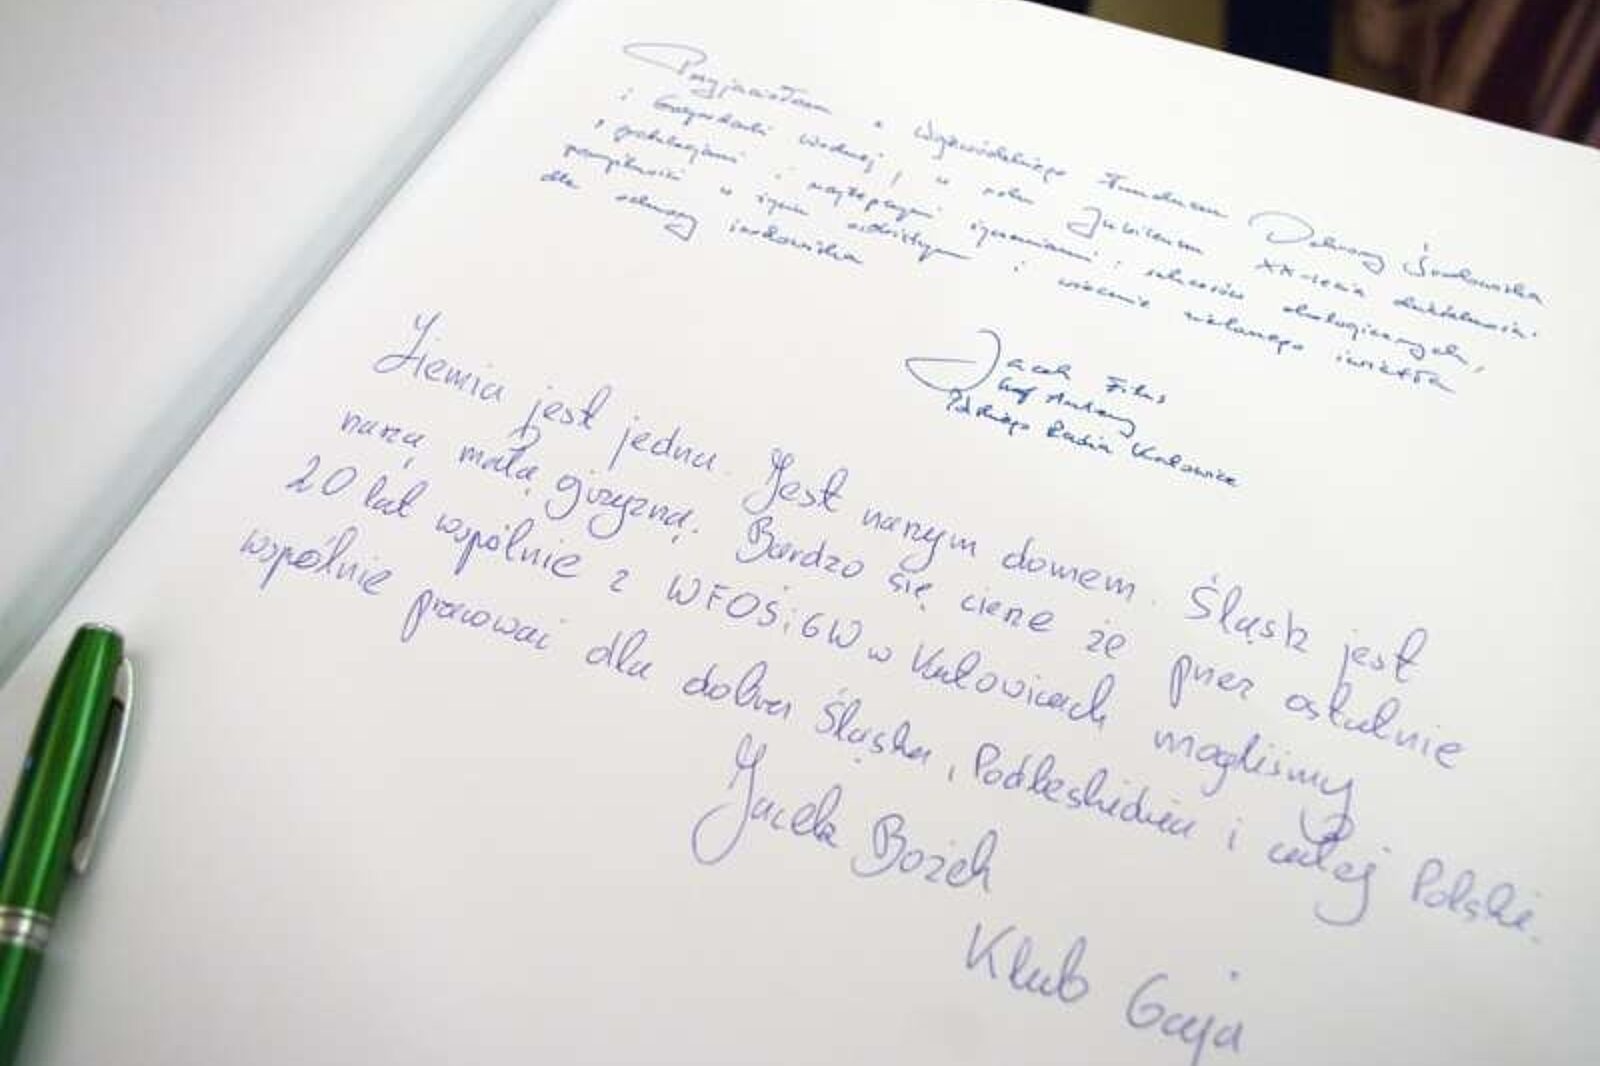 Przyjaciołom z Wojewódzkiego Funduszu Ochrony Środowiska
i Gospodarki Wodnej, w roku Jubileuszu XX-lecia działalności.
z gratulacjami i najlepszymi życzeniami: sukcesów ekologicznych,
pomyślności w życiu osobistym i wiecznie zielonego światła
dla ochrony środowiska
Jacek Filus
Polskiego Radia Katowice
Ziemia jest jedna. Jest naszym domem. Śląsk jest
naszą małą ojczyzną. Bardzo się cieszę że przez ostatnie
20 lat wspólnie z WFOŚiGW w Katowicach mogliśmy
wspólnie pracować dla dobra Śląska, Podbeskidzia i całej Polski.
Jacek Bożek
Klub Gaja